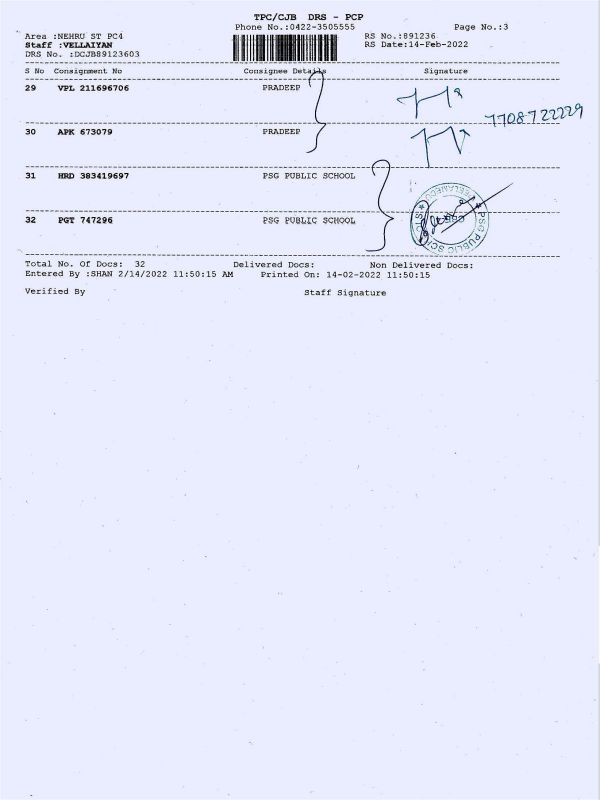 TPC/CJB DRS - PCP
Phone No.:0422-3505555 Page No.:3
Area :NEHRU ST PC4 RS No.:891236
Staff :VELLAIYAN RS Date:14-Feb-2022
DRS No. :DCJB89123603
S No Consignment No Consignee Details Signature
29 VPL 211696706 PRADEEP
7708722229
30 APK 673079 PRADEEP
31 HRD 383419697 PSG PUBLIC SCHOOL
32 PGT 747296 PSG PUBLIC SCHOOL
PSG PUBLIC
Total No. Of Docs: 32 Delivered Docs: Non Delivered Docs:
Entered By :SHAN 2/14/2022 11:50:15 AM Printed On: 14-02-2022 11:50:15
Verified By Staff Signature